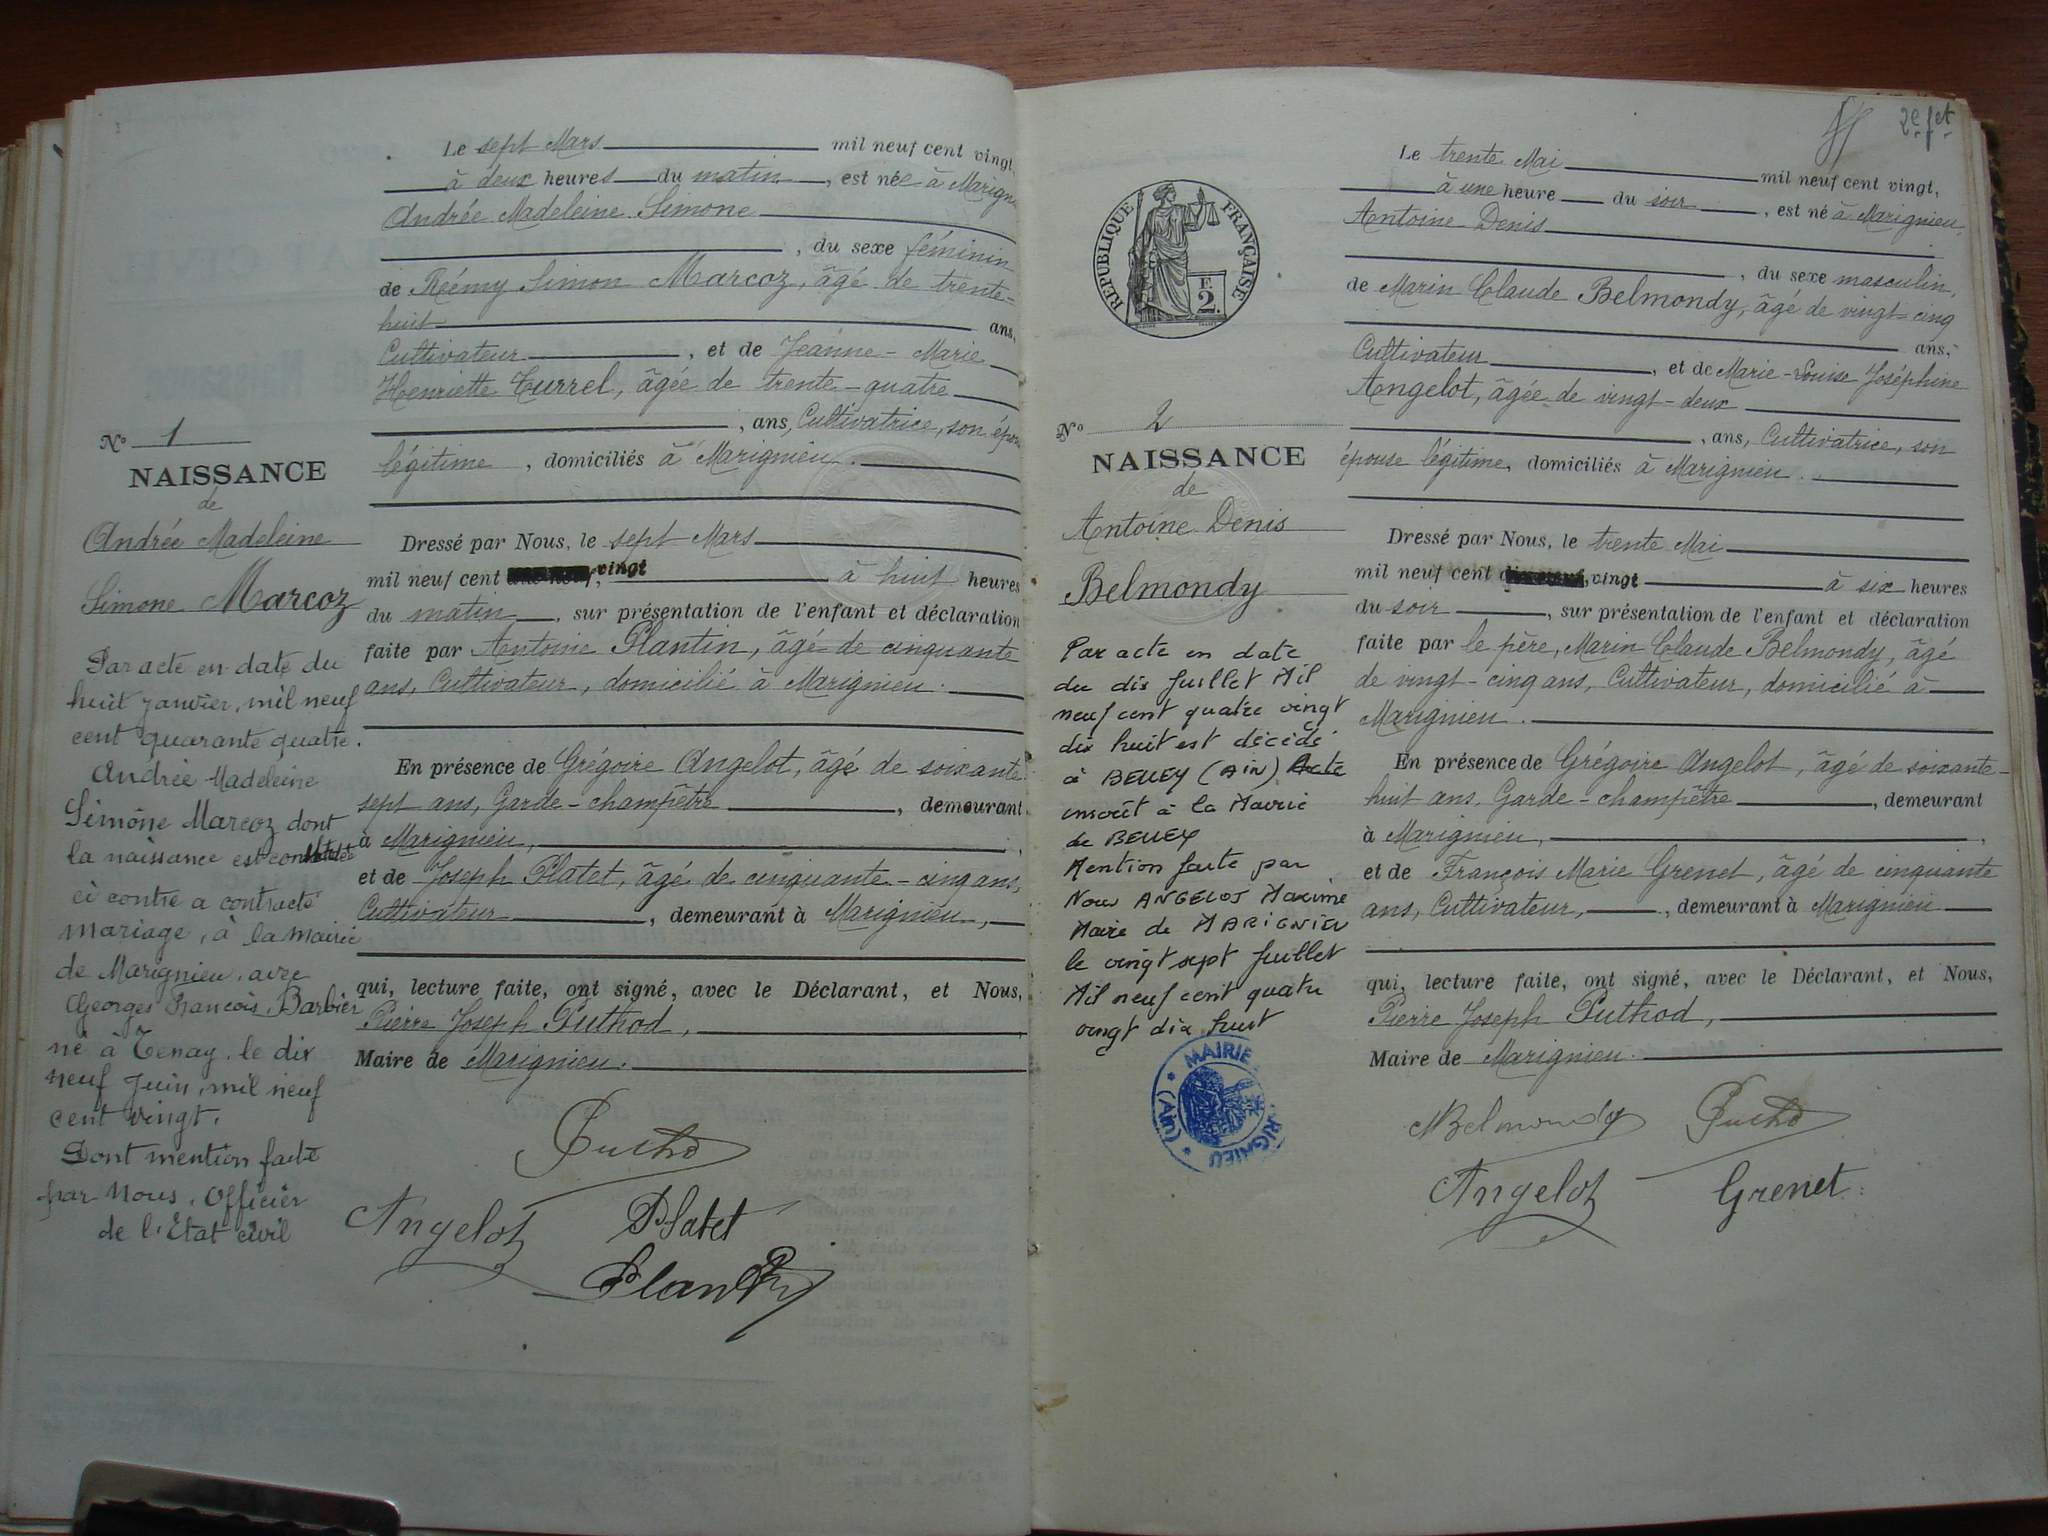 Le sept Mars mil neuf cent vingt,
à deux heures du matin, est née à Marign
Andrée Madeleine Simone
, du sexe féminin
de Rémy Simon Marcoz, âgé de trente-
huit ans,
Cultivateur, et de Jeanne-Marie
Henriette Turrel, âgée de trente-quatre
, ans, Cultivatrice, son épou
légitime, domiciliés à Marignieu.
Nº 1
NAISSANCE
de
Andrée Madeleine
Simone Marcoz
Dressé par Nous, le sept Mars
mil neuf cent vingt à huit heures
du matin, sur présentation de l'enfant et déclaration
faite par Antoine Plantin, âgé de cinquante
ans, Cultivateur, domicilié à Marignieu.
En présence de Grégoire Angelot, âgé de soixante
sept ans, Garde-champêtre, demeurant
à Marignieu,
et de Joseph Platet, âgé de cinquante-cinq ans,
Cultivateur, demeurant à Marignieu,
qui, lecture faite, ont signé, avec le Déclarant, et Nous,
Pierre Joseph Puthod,
Maire de Marignieu.
Puthod
Angelot Platet
Plantin
Par acte en date du
huit janvier, mil neuf
cent quarante quatre.
Andrée Madeleine
Simone Marcoz dont
la naissance est constatée
ci contre a contracté
mariage, à la mairie
de Marignieu, avec
Georges François Barbier
né à Tenay, le dix
neuf Juin, mil neuf
cent vingt.
Dont mention faite
par Nous, Officier
de l'Etat civil
2e fet
Le trente Mai mil neuf cent vingt,
à une heure du soir, est né à Marignieu,
Antoine Denis
, du sexe masculin,
de Marin Claude Belmondy, âgé de vingt-cinq
ans,
Cultivateur, et de Marie-Louise Joséphine
Angelot, âgée de vingt-deux
, ans, Cultivatrice, son
épouse légitime, domiciliés à Marignieu.
RÉPUBLIQUE FRANÇAISE
F.
2.
Nº 2
NAISSANCE
de
Antoine Denis
Belmondy
Dressé par Nous, le trente Mai
mil neuf cent vingt à six heures
du soir, sur présentation de l'enfant et déclaration
faite par le père, Marin Claude Belmondy, âgé
de vingt-cinq ans, Cultivateur, domicilié à
Marignieu.
En présence de Grégoire Angelot, âgé de soixante-
huit ans, Garde-champêtre, demeurant
à Marignieu,
et de François Marie Grenet, âgé de cinquante
ans, Cultivateur, demeurant à Marignieu
qui, lecture faite, ont signé, avec le Déclarant, et Nous,
Pierre Joseph Puthod,
Maire de Marignieu.
MBelmondy Puthod
Angelot Grenet
Par acte en date
du dix Juillet Mil
neuf cent quatre vingt
dix huit est décédé
à BELLEY (AIN) Acte
inscrit à la Mairie
de BELLEY
Mention faite par
Nous ANGELOT Maxime
Maire de MARIGNIEU
le vingt sept Juillet
Mil neuf cent quatre
vingt dix huit
MAIRIE MARIGNIEU (Ain)